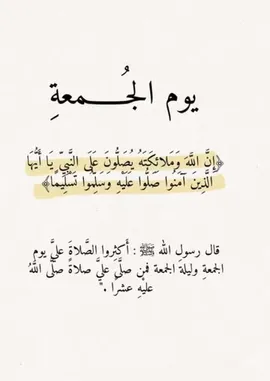 يوم الجُـمعةِ
﴿إِنَّ اللَّهَ وَمَلَائِكَتَهُ يُصَلُّونَ عَلَى النَّبِيِّ يَا أَيُّهَا
الَّذِينَ آمَنُوا صَلُّوا عَلَيْهِ وَسَلِّمُوا تَسْلِيمًا﴾
قال رسول الله ﷺ : أكثروا الصَّلاةَ عليَّ يوم
الجمعةِ وليلةَ الجمعة فمن صلَّى عليَّ صلاةً صلَّى اللَّهُ
عليْهِ عشرًا ."